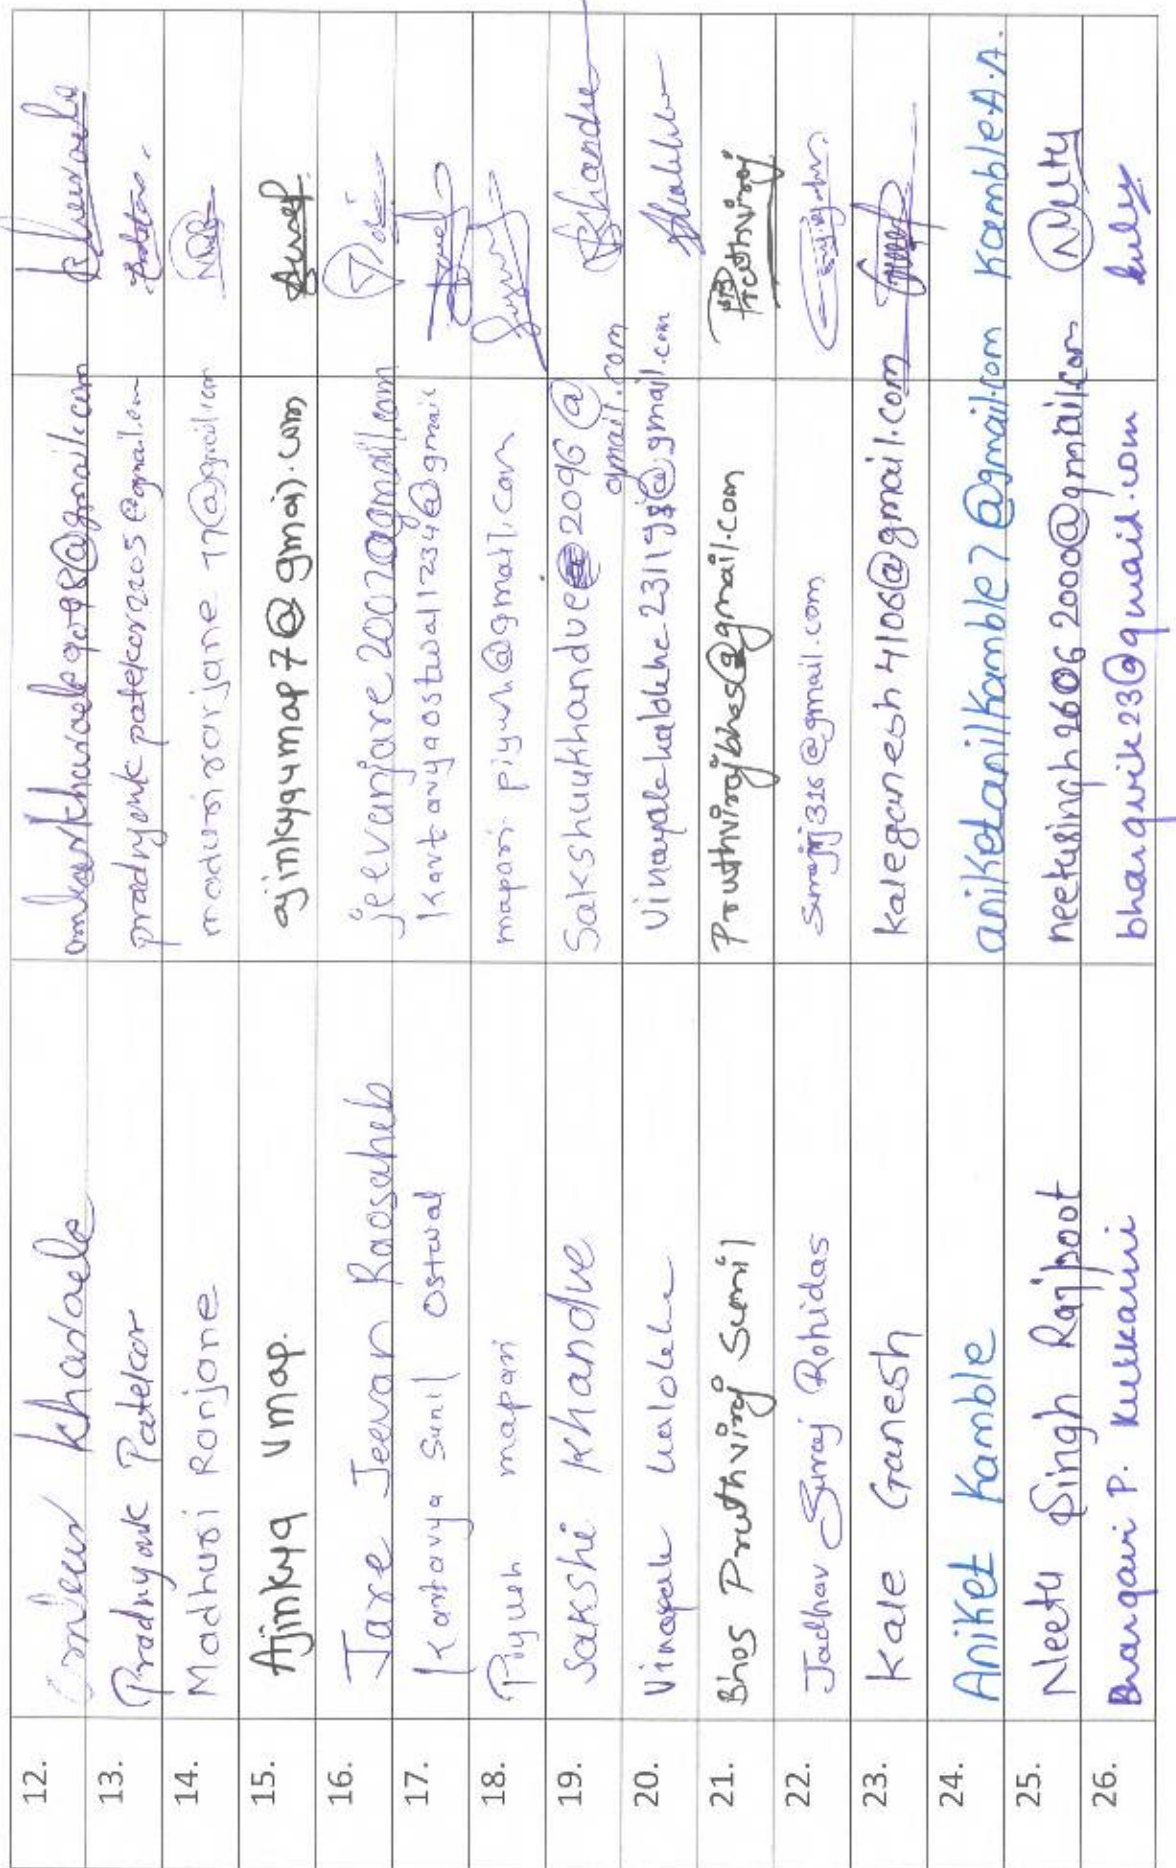 12. Omkar Kharade omkarkharade9098@gmail.com
13. Pradnyank Patekar pradnyankpatekar2205@gmail.com
14. Madhuri Ranjane madhuriranjane77@gmail.com
15. Ajinkya Umap. ajinkyaumap7@gmail.com
16. Jare Jeevan Raosaheb jeevanjare2002@gmail.com
17. Kartavya Sunil Ostwal Kartavyaostwal1234@gmail
18. Piyush mapari mapari.piyush@gmail.com
19. Sakshi Khandve Sakshuukhandve2096@
gmail.com
20. Vinayak
21. Bhos Pruthviraj Sunil Pruthvirajbhos@gmail.com Pruthviraj
22. Jadhav Suraj Rohidas surajrj316@gmail.com
23. Kale Ganesh kaleganesh4106@gmail.com
24. Aniket Kamble aniketanilkamble7@gmail.com Kamble A.A.
25. Neetu Singh Rajpoot neetusingh26062000@gmail.com Neetu
26. Bhargavi P. Kulkarni bhargavik23@gmail.com